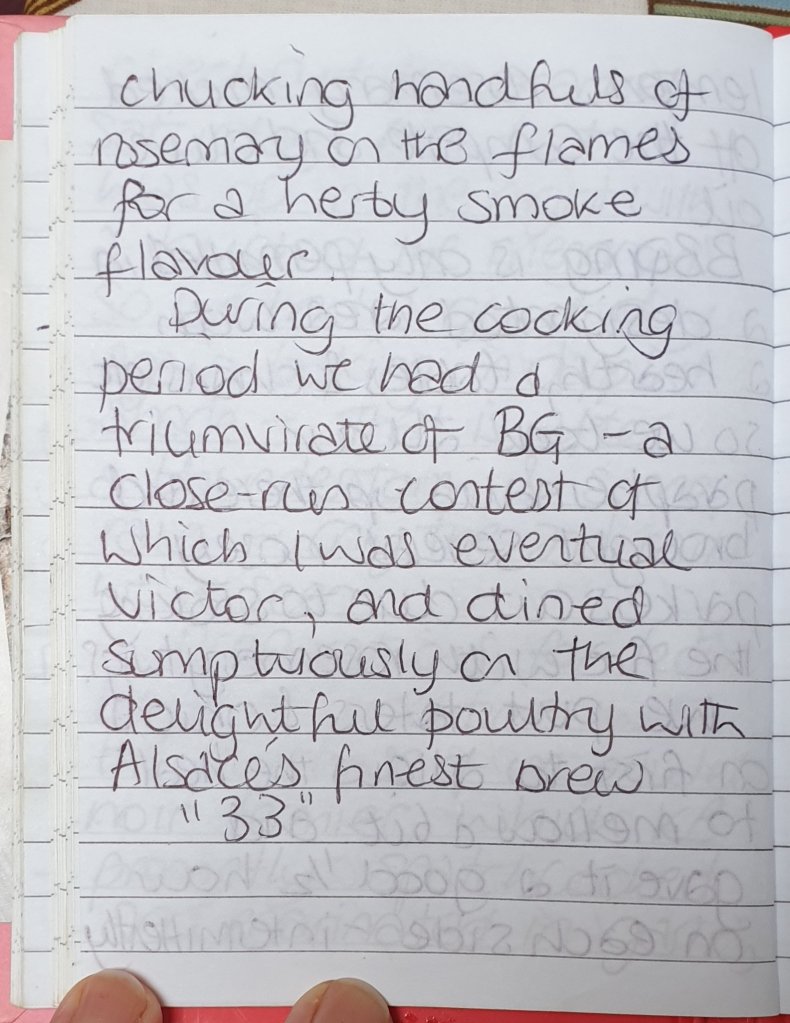 chucking handfuls of
rosemary on the flames
for a herby smoke
flavour.
During the cooking
period we had a
triumvirate of BG - a
close-run contest of
which I was eventual
victor, and dined
sumptuously on the
delightful poultry with
Alsace's finest brew
"33"